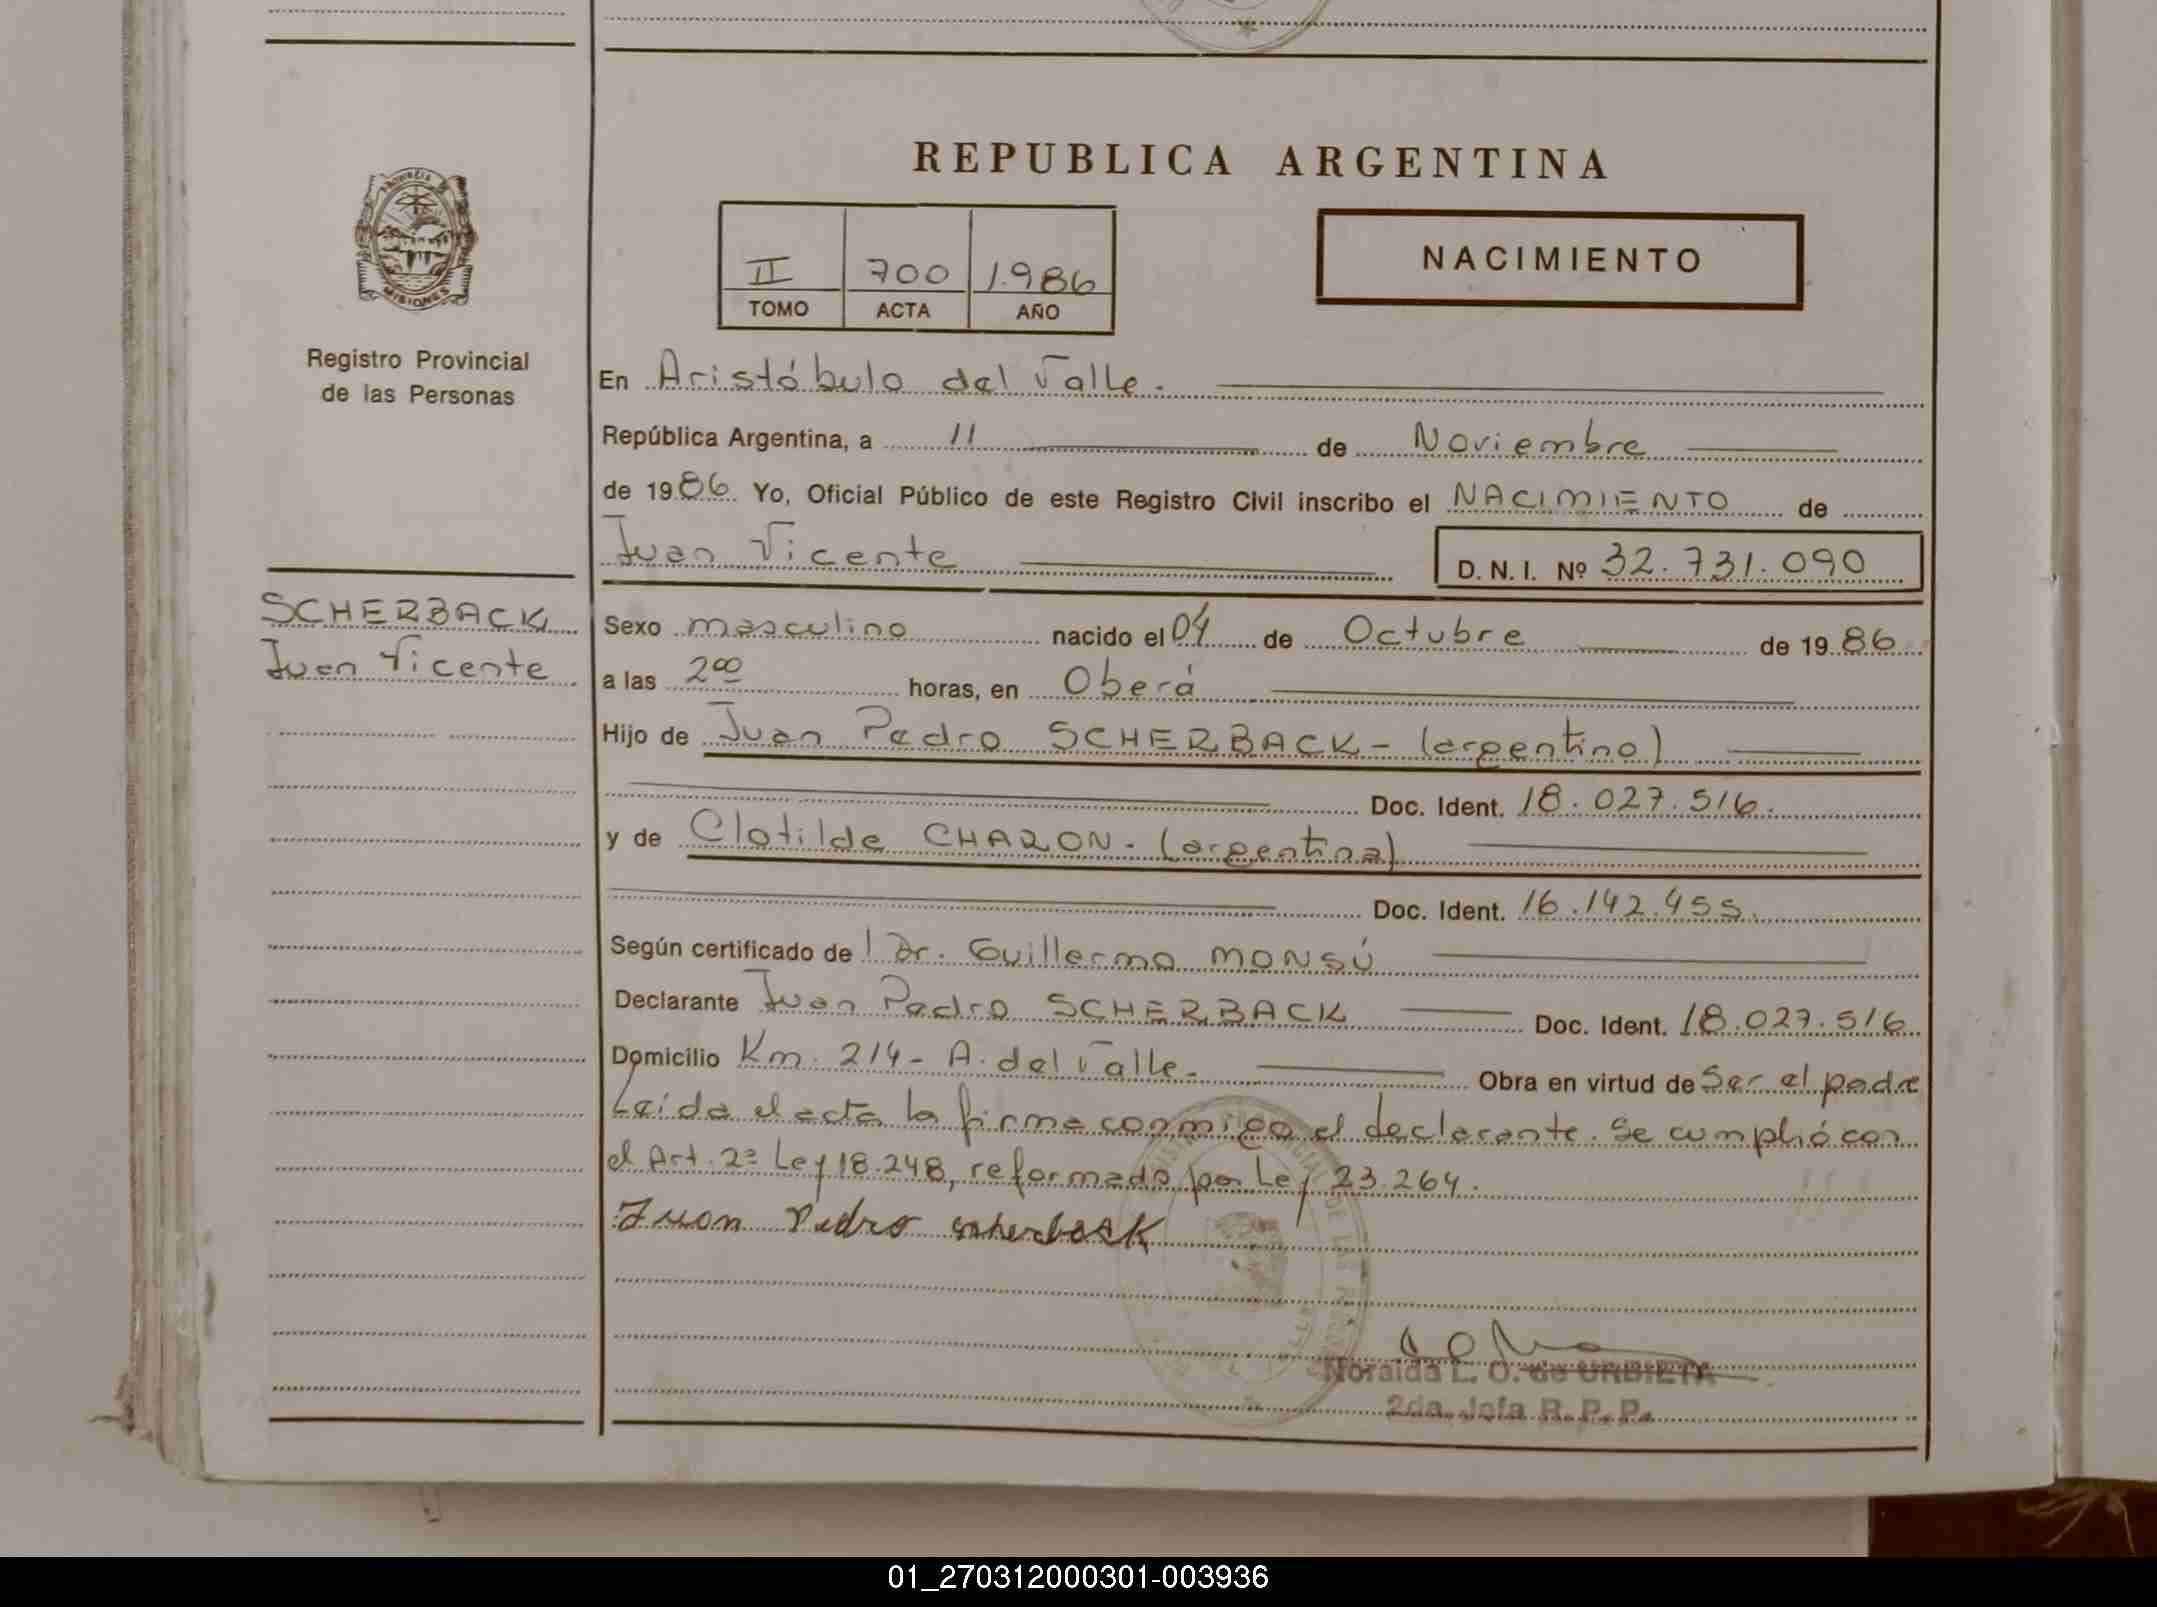 REPUBLICA ARGENTINA
PROVINCIA DE
MISIONES
Registro Provincial
de las Personas
II 700 1.986
TOMO ACTA AÑO
NACIMIENTO
En Aristóbulo del Valle.
República Argentina, a 11 de Noviembre
de 1986 Yo, Oficial Público de este Registro Civil inscribo el NACIMIENTO de
Juan Vicente D. N. I. Nº 32.731.090
SCHERBACK
Juan Vicente
Sexo masculino nacido el 04 de Octubre de 1986
a las 2⁰⁰ horas, en Oberá
Hijo de Juan Pedro SCHERBACK - (argentino)
Doc. Ident. 18.027.516.
y de Clotilde CHARON - (argentina)
Doc. Ident. 16.142.455.
Según certificado de l Dr. Guillermo MONSÚ
Declarante Juan Pedro SCHERBACK Doc. Ident. 18.027.516
Domicilio Km. 214 - A. del Valle. Obra en virtud de Ser el padre
Leída el acta la firma conmigo el declarante. Se cumplió con
el Art. 2º Ley 18.248, reformado por Ley 23.264.
Juan Pedro scherback
Noraida L. O. de URBIETA
2da. Jefa R. P. P.
01_270312000301-003936